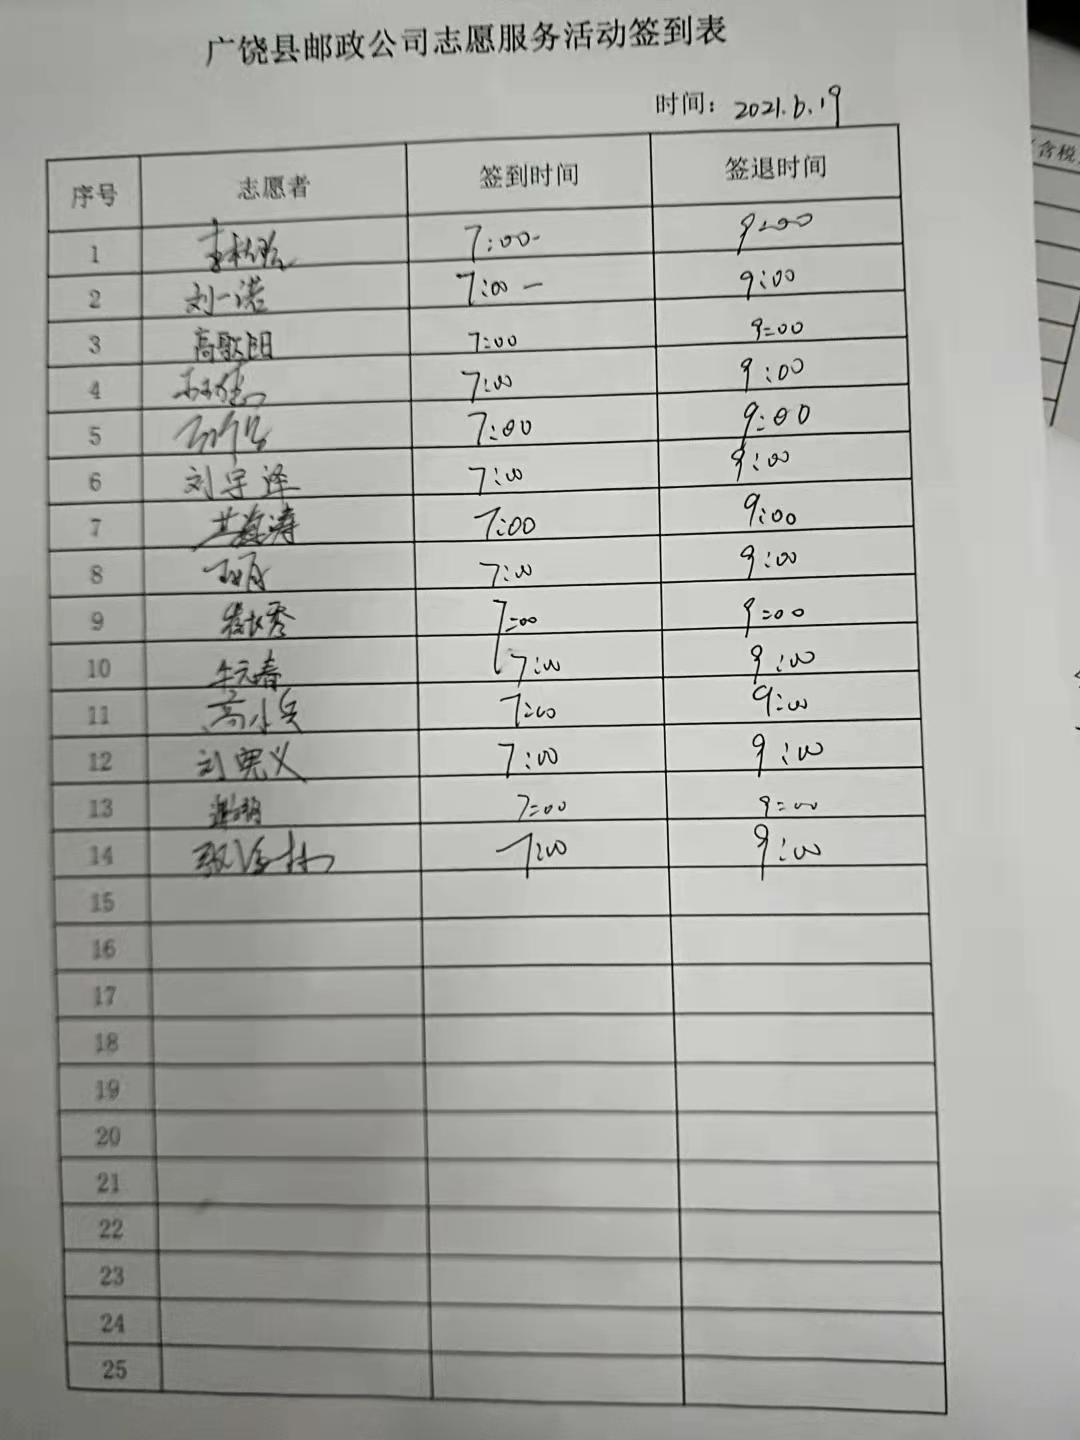 广饶县邮政公司志愿服务活动签到表
时间：2021.6.19
序号 志愿者 签到时间 签退时间
1 7:00- 9:00
2 刘一诺 7:00 - 9:00
3 高歌阳 7:00 9:00
4 7:00 9:00
5 7:00 9:00
6 刘宇泽 7:00 9:00
7 7:00 9:00
8 7:00 9:00
9 7:00 9:00
10 牛元春 7:00 9:00
11 高小兵 7:00 9:00
12 刘宪义 7:00 9:00
13 7:00 9:00
14 7:00 9:00
15
16
17
18
19
20
21
22
23
24
25
含税